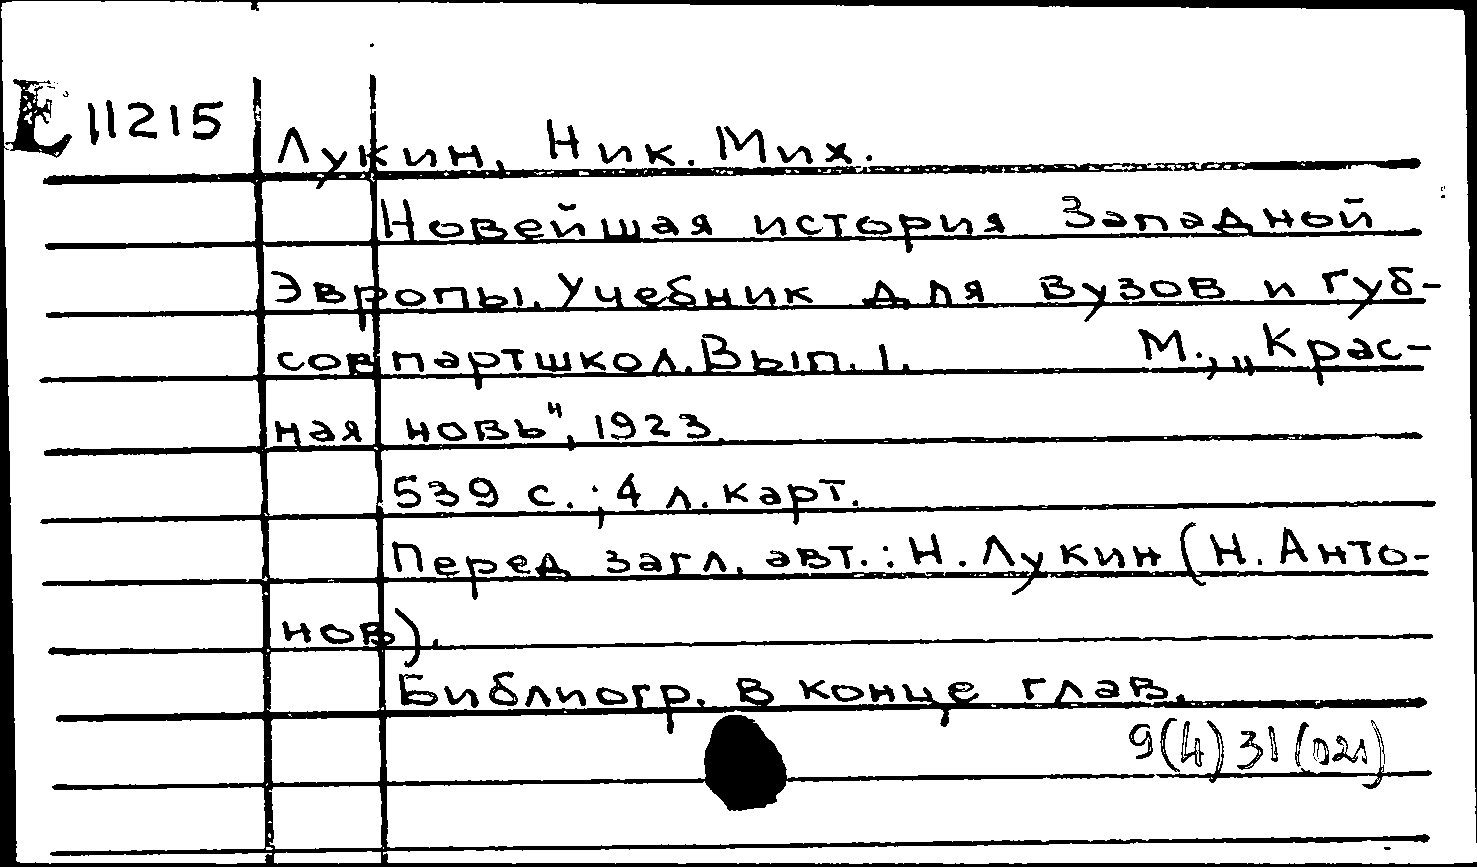 E 11215
Лукин, Ник. Мих.
Новейшая история Западной
Эвропы. Учебник для вузов и губ-
совпартшкол. Вып. 1. М., „Крас-
ная новь", 1923.
539 с.; 4 л. карт.
Перед загл. авт.: Н. Лукин (Н. Анто-
нов).
Библиогр. в конце глав.
9(4)31(021)